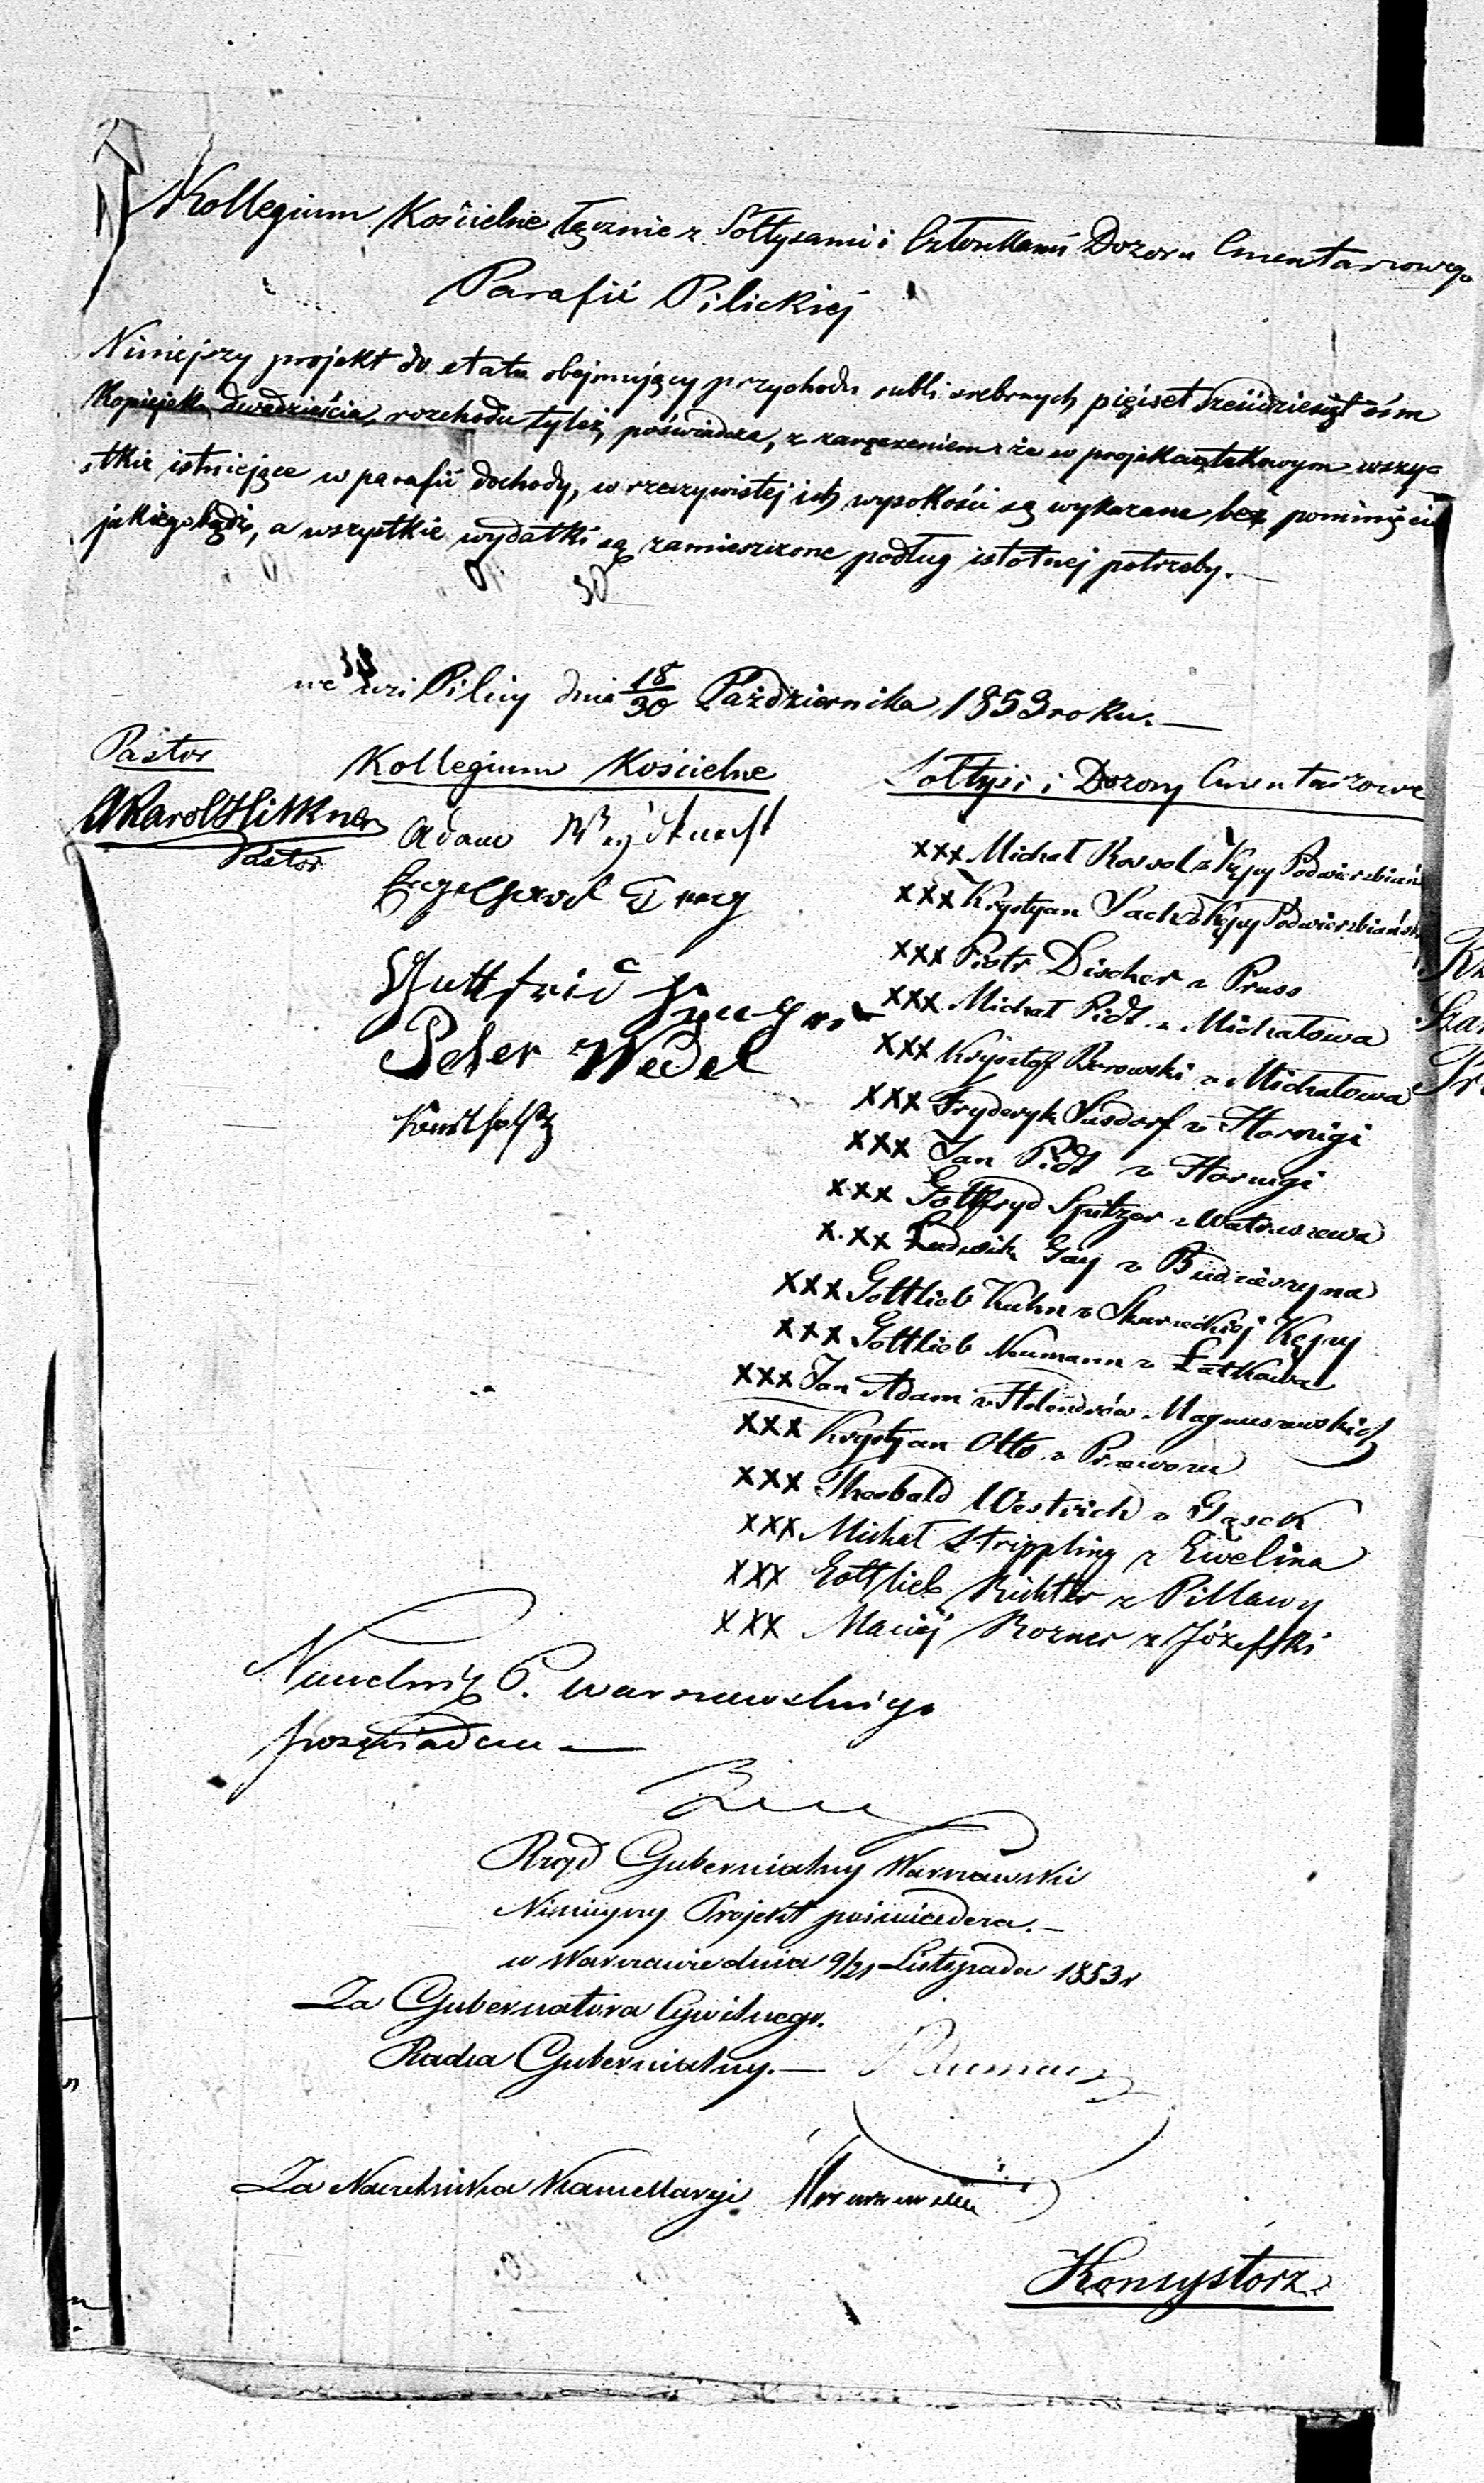 Kollegium Kościelne łącznie z Sołtysami i Członkami Dozoru Cmentarzowego
Parafii Pilickiej
Niniejszy projekt do etatu obejmujący przychodu rubli srebrnych pięćset sześćdziesiąt ośm
Kopiejek dwadzieścia, rozchodu tyleż, poświadcza, z zaręczeniem że w projekcie takowym wszy=
stkie istniejące w parafii dochody, w rzeczywistej ich wysokości są wykazane bez pominięcia
jakiegobądź, a wszystkie wydatki są zamieszczone podług istotnej potrzeby.—
30
we wsi Pilicy dnia 18/30 Października 1853 roku.—
Pastor
Karol Hitkner
Pastor
Kollegium Kościelne
Adam
Peter Wedel
Sołtysi i Dozory Cmentarzowe
xxx Michał Rossol z Kępy Podwierzbiańs
xxx Krystyan Sach z Kępy Podwierzbiańsk
xxx Piotr Discher z Pruss
xxx Michał Pidt z Michałowa
xxx Krysztof Borowski z Michałowa
xxx Fryderyk Susdorf z Hornigi
xxx Jan Pidt z Hornigi
xxx Gottfryd Spitzer z Watraszewa
xxx Ludwik Gay z Budziszyna
xxx Gottlieb Kuhn z Skureckiej Kępy
xxx Gottlieb Neumann z Łatkowa
xxx Jan Adam z Holendrów Magnuszewskich
xxx Krystyan Otto z Przewozu
xxx Theobald Westrich z Gąsek
xxx Michał Strippling z Ewelina
xxx Gottlieb Richter z Pillawy
xxx Maciej Rozner z Józefski
Naczelnik P. Warszawskiego
poświadcza —
Rząd Gubernialny Warszawski
Niniejszy Projekt poświadcza.—
w Warszawie dnia 9/21 Listopada 1853 r
Za Gubernatora Cywilnego.
Radca Gubernialny.—
Za Naczelnika Kancellaryi
Konsystorz